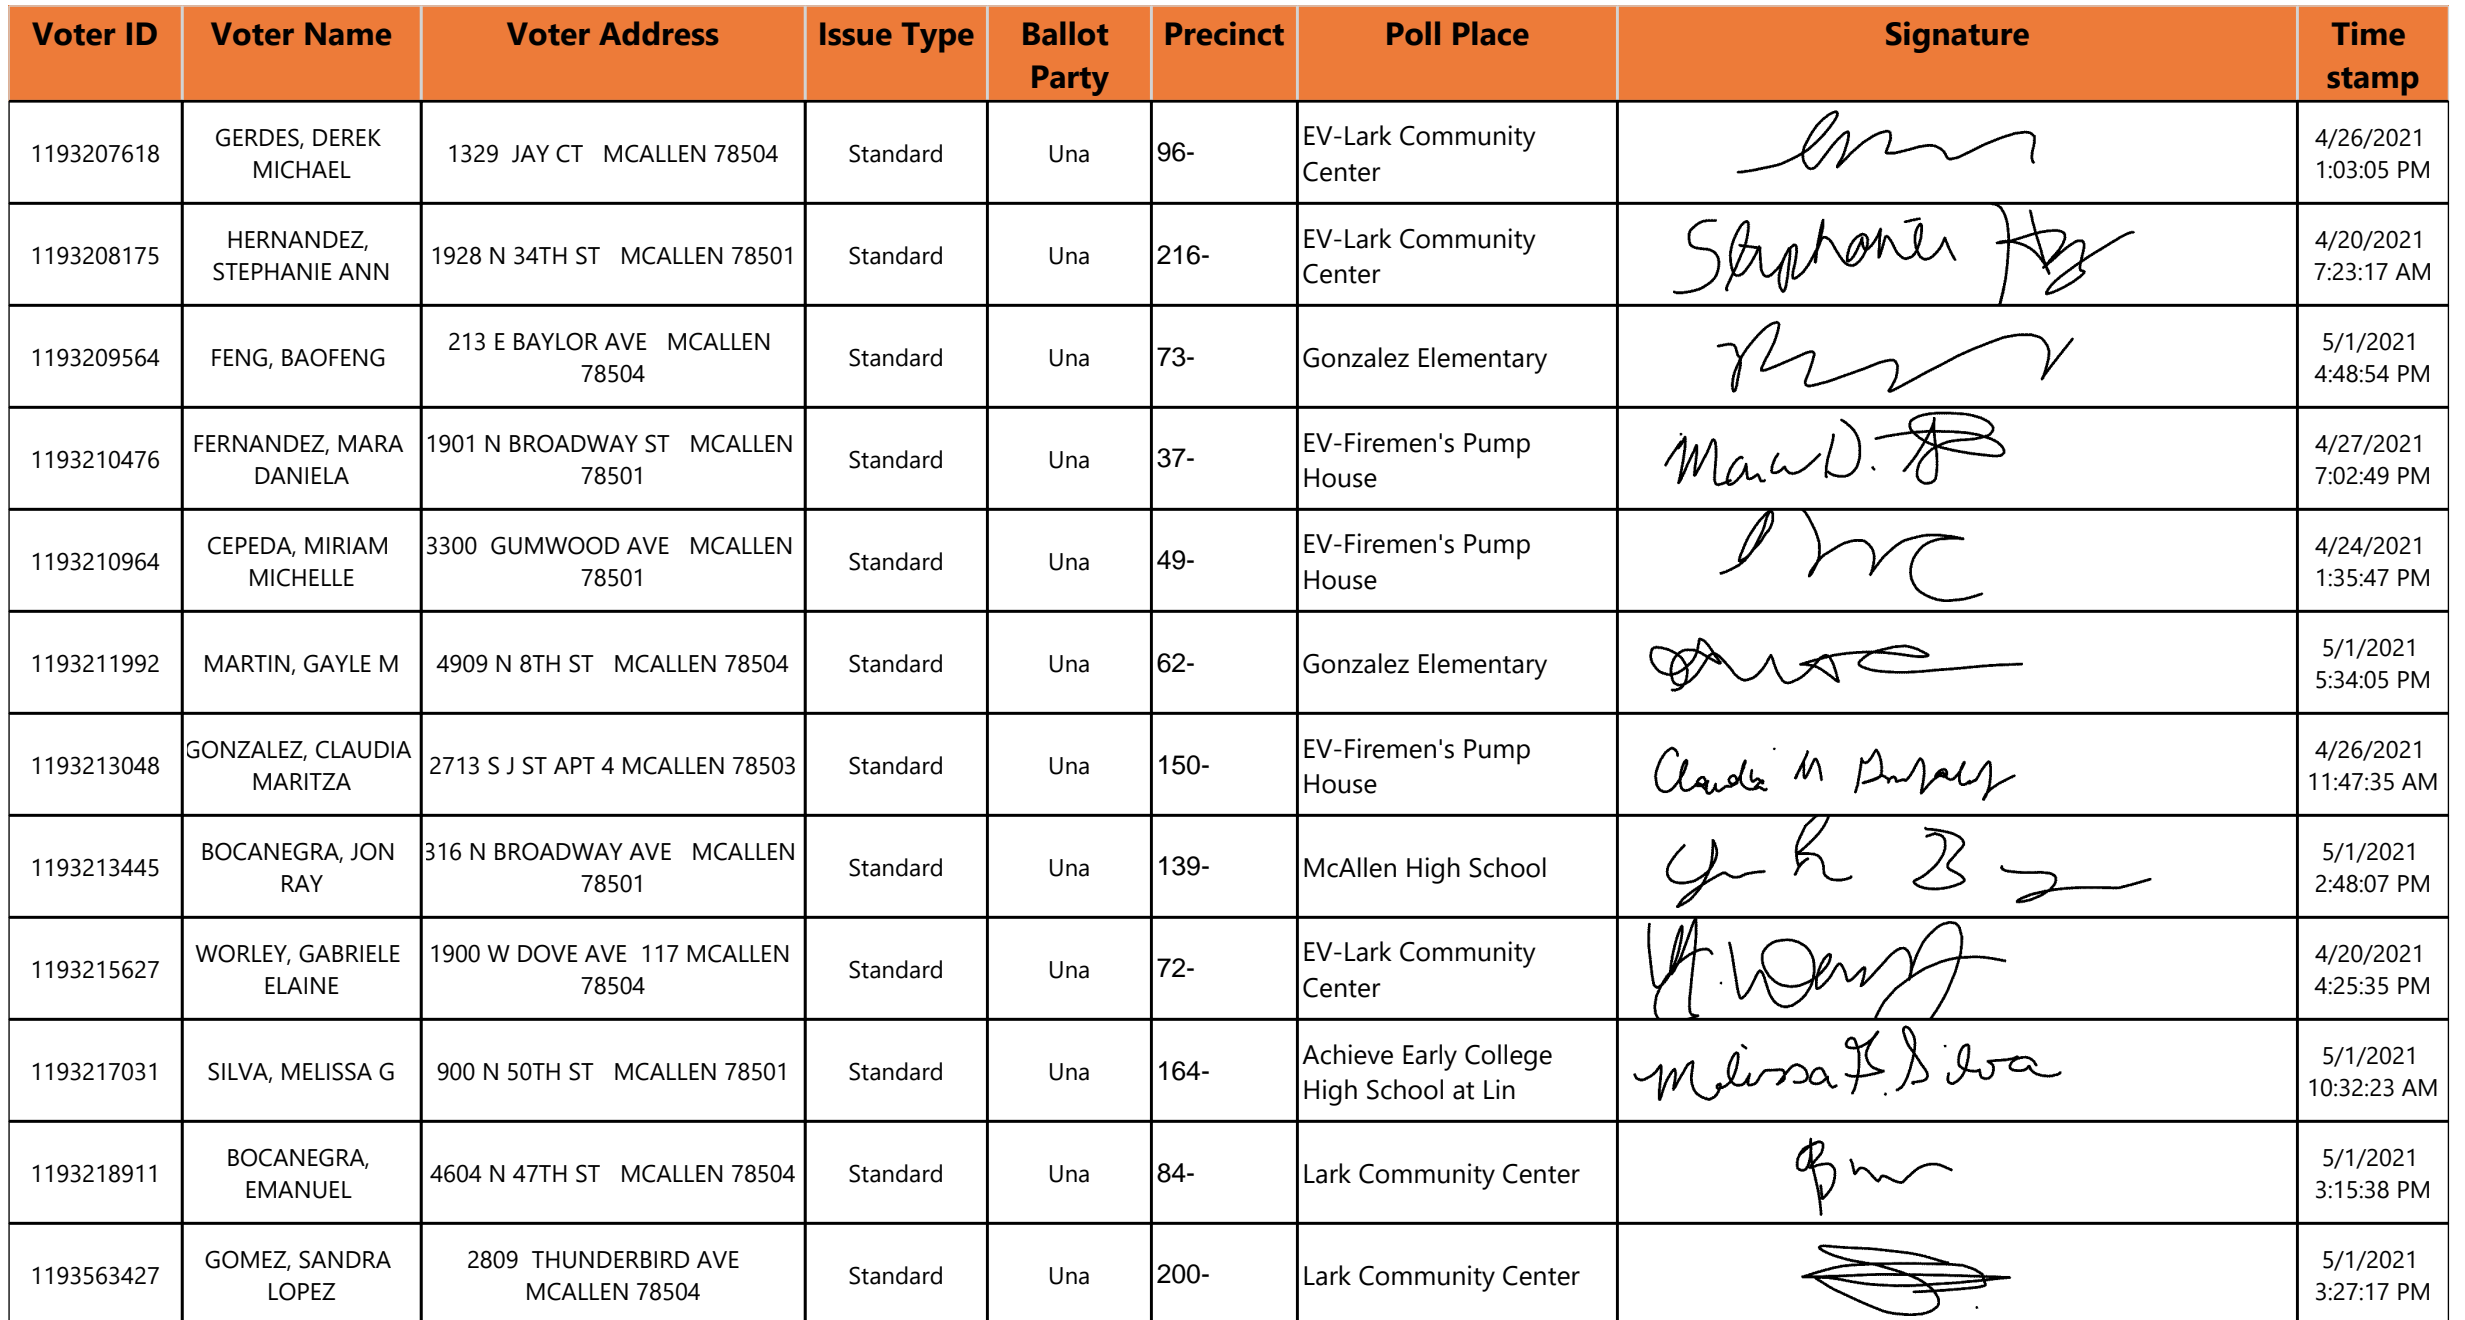 Voter ID Voter Name Voter Address Issue Type Ballot Party Precinct Poll Place Signature Time stamp
1193207618 GERDES, DEREK MICHAEL 1329 JAY CT MCALLEN 78504 Standard Una 96- EV-Lark Community Center 4/26/2021 1:03:05 PM
1193208175 HERNANDEZ, STEPHANIE ANN 1928 N 34TH ST MCALLEN 78501 Standard Una 216- EV-Lark Community Center Stephanie 4/20/2021 7:23:17 AM
1193209564 FENG, BAOFENG 213 E BAYLOR AVE MCALLEN 78504 Standard Una 73- Gonzalez Elementary 5/1/2021 4:48:54 PM
1193210476 FERNANDEZ, MARA DANIELA 1901 N BROADWAY ST MCALLEN 78501 Standard Una 37- EV-Firemen's Pump House Mara D. 4/27/2021 7:02:49 PM
1193210964 CEPEDA, MIRIAM MICHELLE 3300 GUMWOOD AVE MCALLEN 78501 Standard Una 49- EV-Firemen's Pump House 4/24/2021 1:35:47 PM
1193211992 MARTIN, GAYLE M 4909 N 8TH ST MCALLEN 78504 Standard Una 62- Gonzalez Elementary 5/1/2021 5:34:05 PM
1193213048 GONZALEZ, CLAUDIA MARITZA 2713 S J ST APT 4 MCALLEN 78503 Standard Una 150- EV-Firemen's Pump House Claudia M Gonzalez 4/26/2021 11:47:35 AM
1193213445 BOCANEGRA, JON RAY 316 N BROADWAY AVE MCALLEN 78501 Standard Una 139- McAllen High School 5/1/2021 2:48:07 PM
1193215627 WORLEY, GABRIELE ELAINE 1900 W DOVE AVE 117 MCALLEN 78504 Standard Una 72- EV-Lark Community Center 4/20/2021 4:25:35 PM
1193217031 SILVA, MELISSA G 900 N 50TH ST MCALLEN 78501 Standard Una 164- Achieve Early College High School at Lin Melissa G. Silva 5/1/2021 10:32:23 AM
1193218911 BOCANEGRA, EMANUEL 4604 N 47TH ST MCALLEN 78504 Standard Una 84- Lark Community Center 5/1/2021 3:15:38 PM
1193563427 GOMEZ, SANDRA LOPEZ 2809 THUNDERBIRD AVE MCALLEN 78504 Standard Una 200- Lark Community Center 5/1/2021 3:27:17 PM